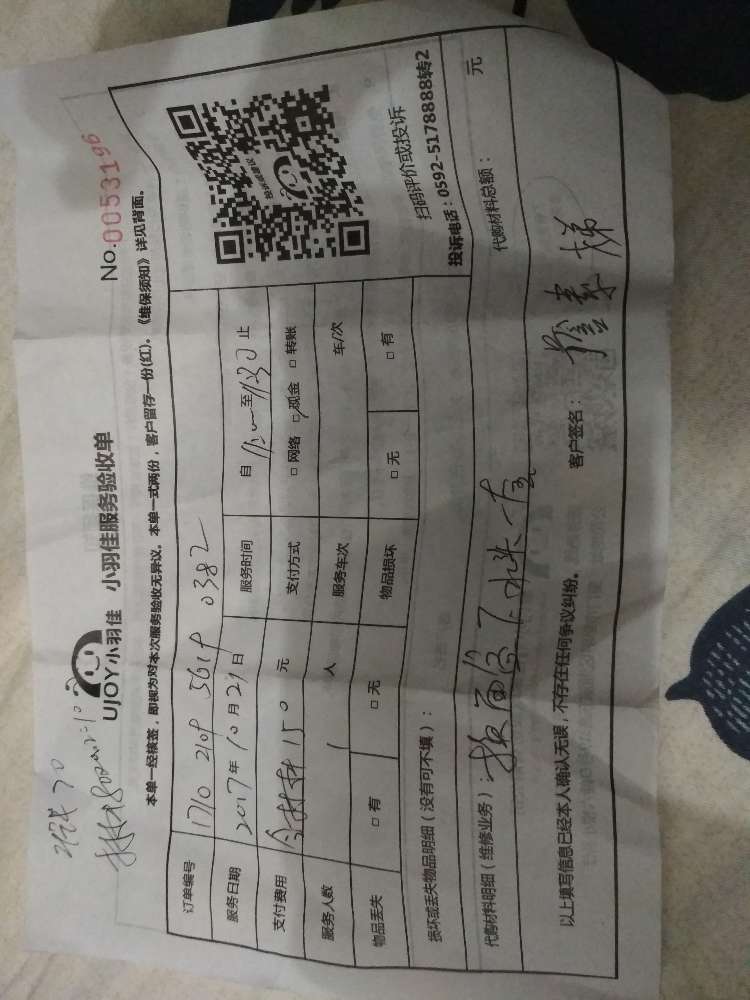 UJOY小羽佳 小羽佳服务验收单 No.0053196
本单一经核签，即视为对本次服务验收无异议，本单一式两份，客户留存一份(红)。《维保须知》详见背面。
订单编号
服务日期 2017年10月29日 服务时间 自 至 止
支付费用 含材料150元 支付方式 □网络 □现金 □转账
服务人数 1人 服务车次 车/次
物品丢失 □有 □无 物品损坏 □无 □有
投诉或建议
扫码评价或投诉
投诉电话：0592-5178888转2
损坏或丢失物品明细（没有可不填）：
代购材料明细（维修业务）： 代购材料总额： 元
以上填写信息已经本人确认无误，不存在任何争议纠纷。 客户签名：